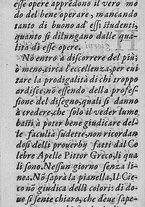 esse opere apprédono il vero mo
do del bene operare, mancando
tanto di buono ad essi studenti,
quanto si dilungano dalle qua-
lità di esse opere.
Nō entro à discorrere del più,
ò meno, circa l'eccellenza, per cau
sare la prodigalità di chi troppo
dice; nō essendo della profes-
sione del disegno, quali sanno
credere, che solo il veder lume
basti, per poter giudicare delle
le faculià sudette, non ricordan
dosi delli prouerbi fatti dal Ce
lebre Apelle Pittor Greco, i qua
li sono. Nessun giorno senza li-
nea. Nō saprà la pianella. Il Cie
co nō giudica delli colori, di che
ue si sente chiaro, che due sape-